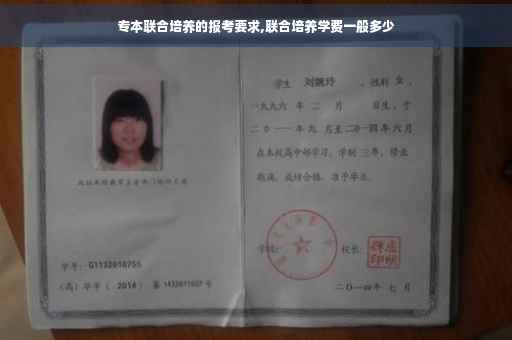 专本联合培养的报考要求,联合培养学费一般多少
学号: G1132010755
(高)毕字( 2014 ) 第 1432011037 号
学生 刘婉玲 ,性别 女 ,
一九九六 年 二 月 日生,于
二〇一一 年 九 月至 二〇一四 年 六 月
在本校高中部学习,学制 三年,修业
期满,成绩合格,准予毕业。
学校: 校长:
二〇一四年 七 月